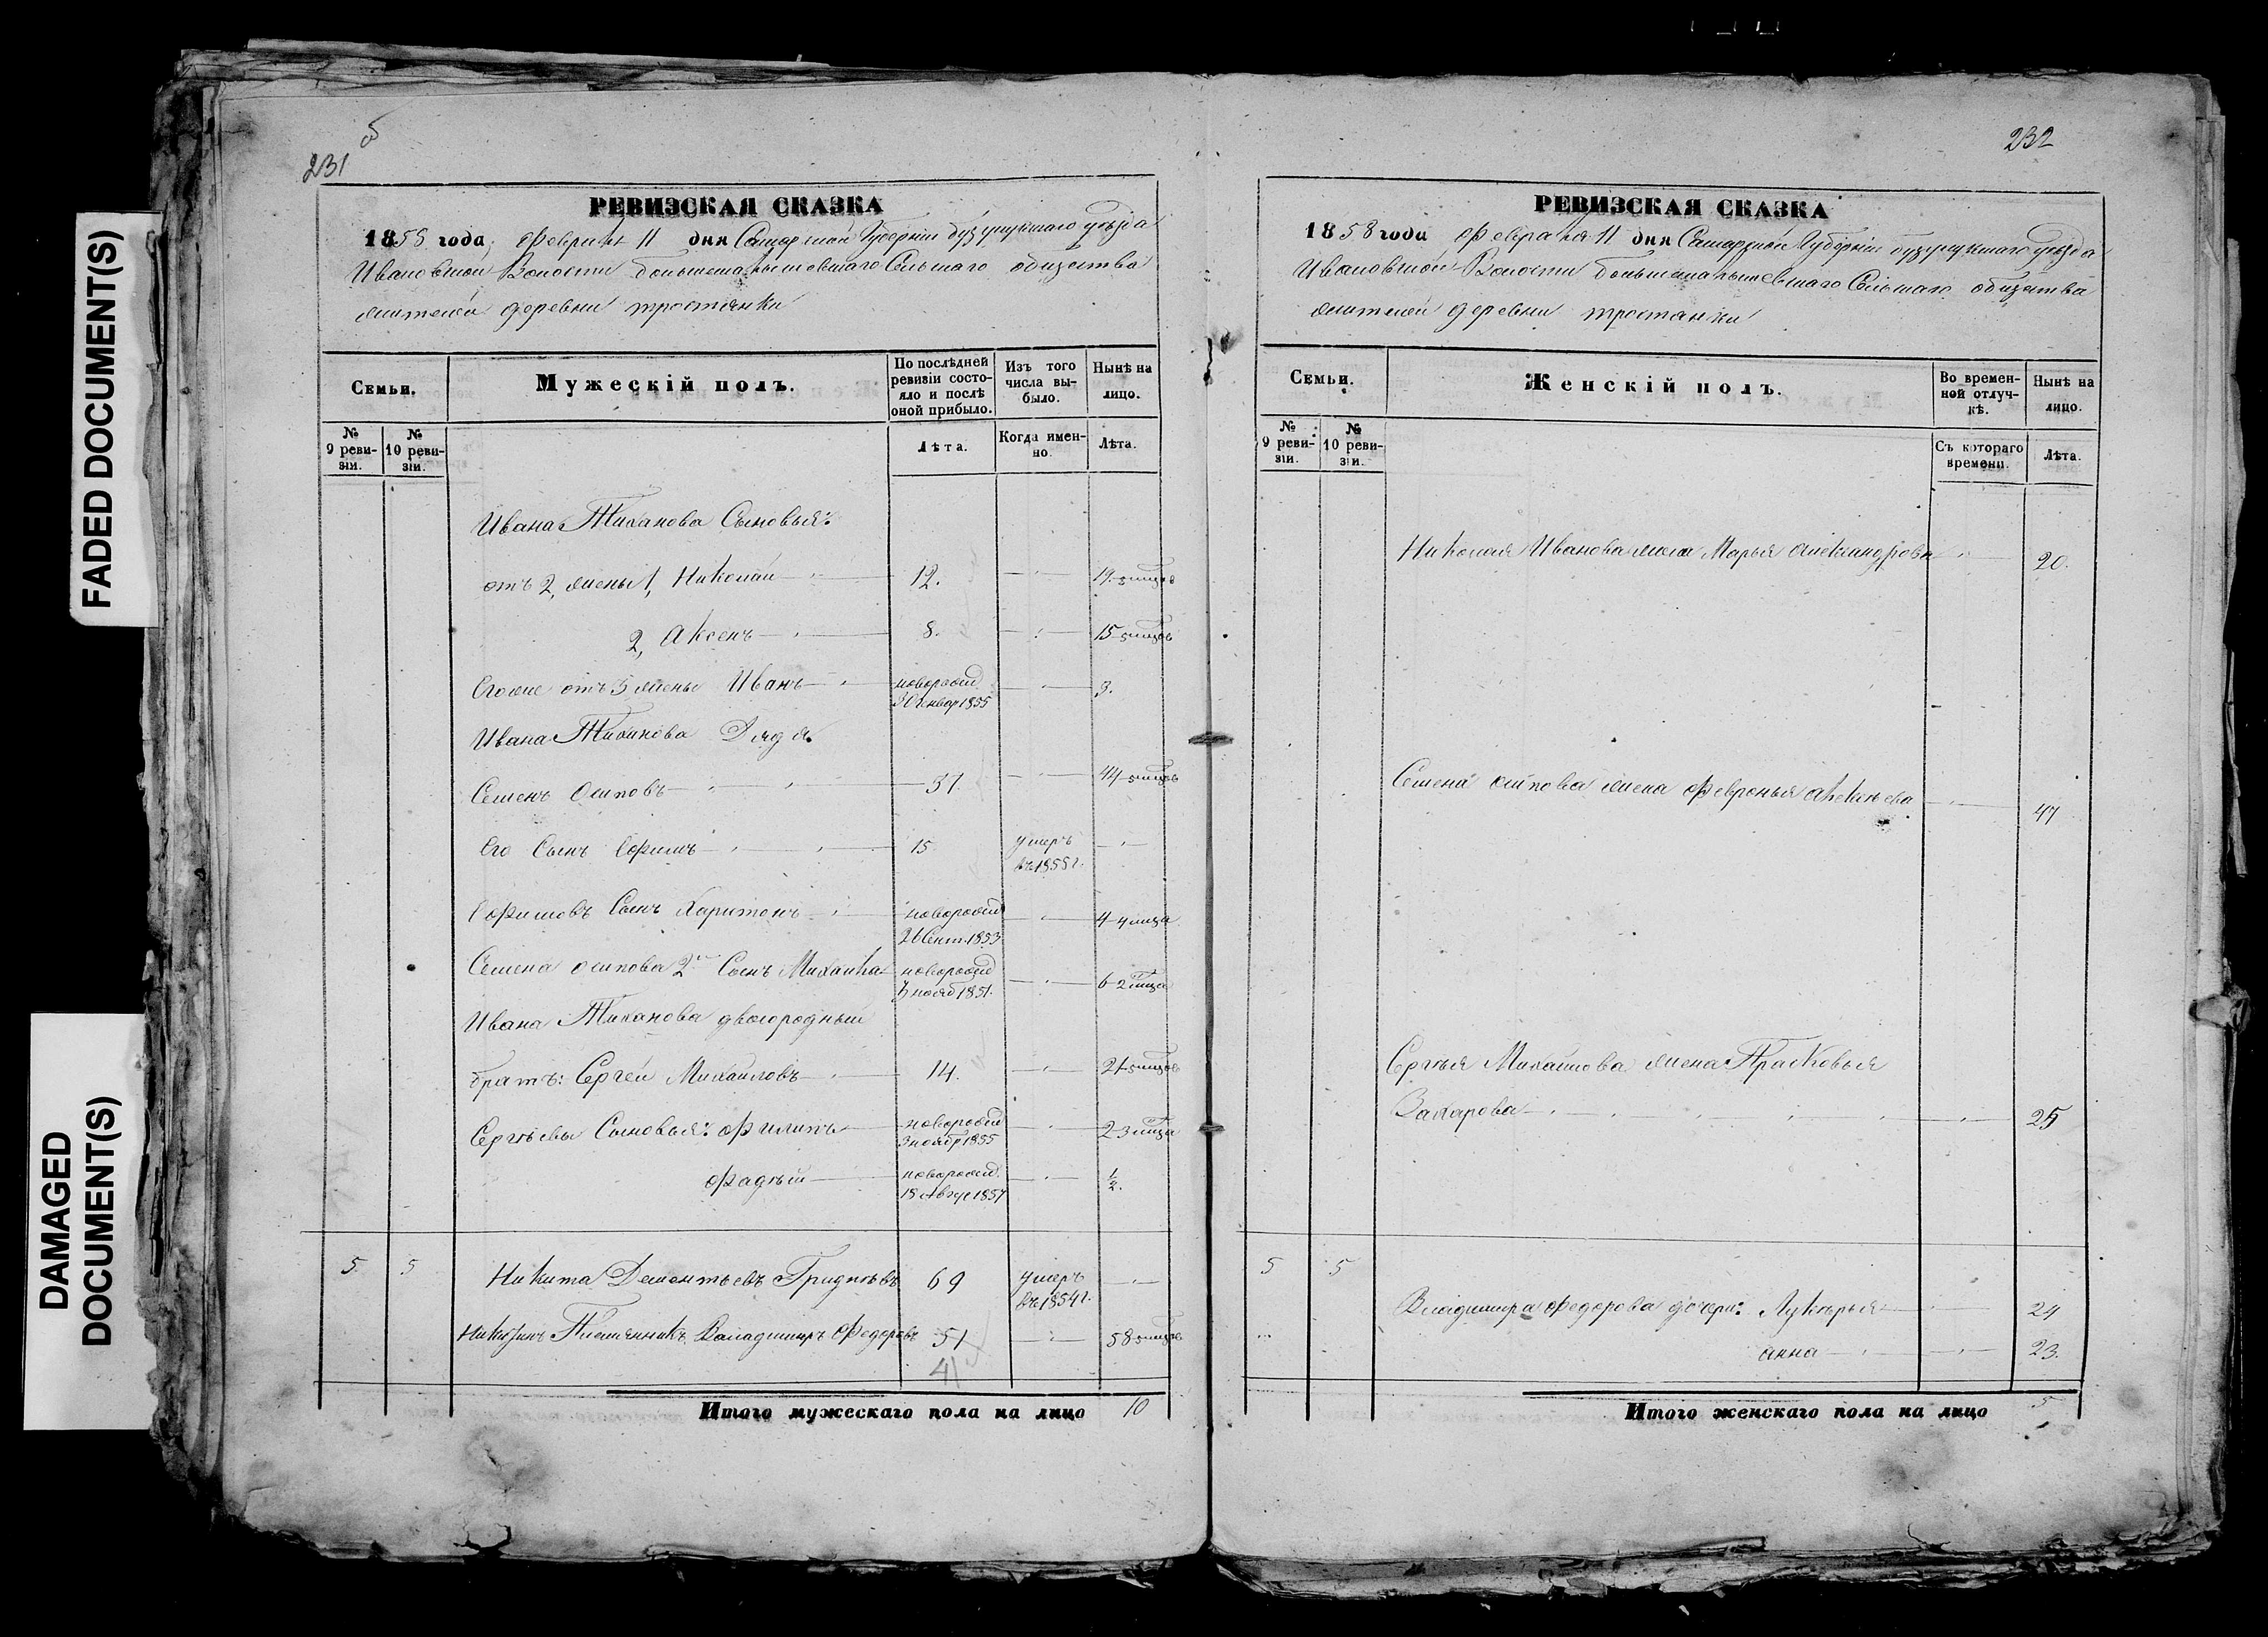 FADED DOCUMENT(S)
DAMAGED DOCUMENT(S)
231
РЕВИЗСКАЯ СКАЗКА
1858 года, Февраля 11 дня Самарской Губерніи бузулукскаго уѣзда
Ивановской Волости большемалышевскаго Сельскаго общества
жителей деревни тростянки
Семьи.
Мужескій полъ.
По послѣдней ревизіи состояло и послѣ оной прибыло.
Изъ того числа выбыло.
Нынѣ на лицо.
№ 9 ревизіи.
№ 10 ревизіи.
Лѣта.
Когда именно.
Лѣта.
Ивана Тиханова Сыновья:
отъ 2, жены 1, Николай 12. 19-5 мцов
2, Аксенъ 8. 15-5 мцов
Егоже отъ 3 жены Иванъ новорожд 30 Январ 1855 3.
Ивана Тиханова Дядя
Семенъ Осиповъ 37. 44-5 мцов
Его Сынъ Ефимъ 15 умеръ въ 1855 г.
Ефимовъ Сынъ Харитонъ новорожд 26 Сент. 1853 4-4 мца
Семена осипова 2й Сынъ Михайла новорожд нояб 1851. 6-2 мца
Ивана Тиханова двоюродный
братъ: Сергей Михайловъ 14. 21-5 мцов
Сергѣевы Сыновья: Филипъ новорожд 3 ноябр 1855 2-3 мца
Фадѣй новорожд. 18 Авгус 1857 ½.
5 5 Никита Дементьевъ Гридневъ 69 умеръ въ 1854 г.
Никитинъ Племянникъ Валадимиръ Федоровъ 51 58 5 мцов
41
Итого мужескаго пола на лицо 10
232
РЕВИЗСКАЯ СКАЗКА
1858 года Февраля 11 дня Самарской Губерніи бузулукскаго уѣзда
Ивановской Волости большемалышевскаго Сельскаго общества
жителей деревни тростянки
Семьи.
Женскій полъ.
Во временной отлучкѣ.
Нынѣ на лицо.
№ 9 ревизіи.
№ 10 ревизіи.
Съ котораго времени.
Лѣта.
Николая Иванова жена Марья Александрова 20.
Семена осипова жена Февронья Алексѣева 47
Сергѣя Михайлова жена Прасковья
Захарова 25
5 5
Владимира Федорова дочери: Лукѣрья 24
анна 23.
Итого женскаго пола на лицо 5